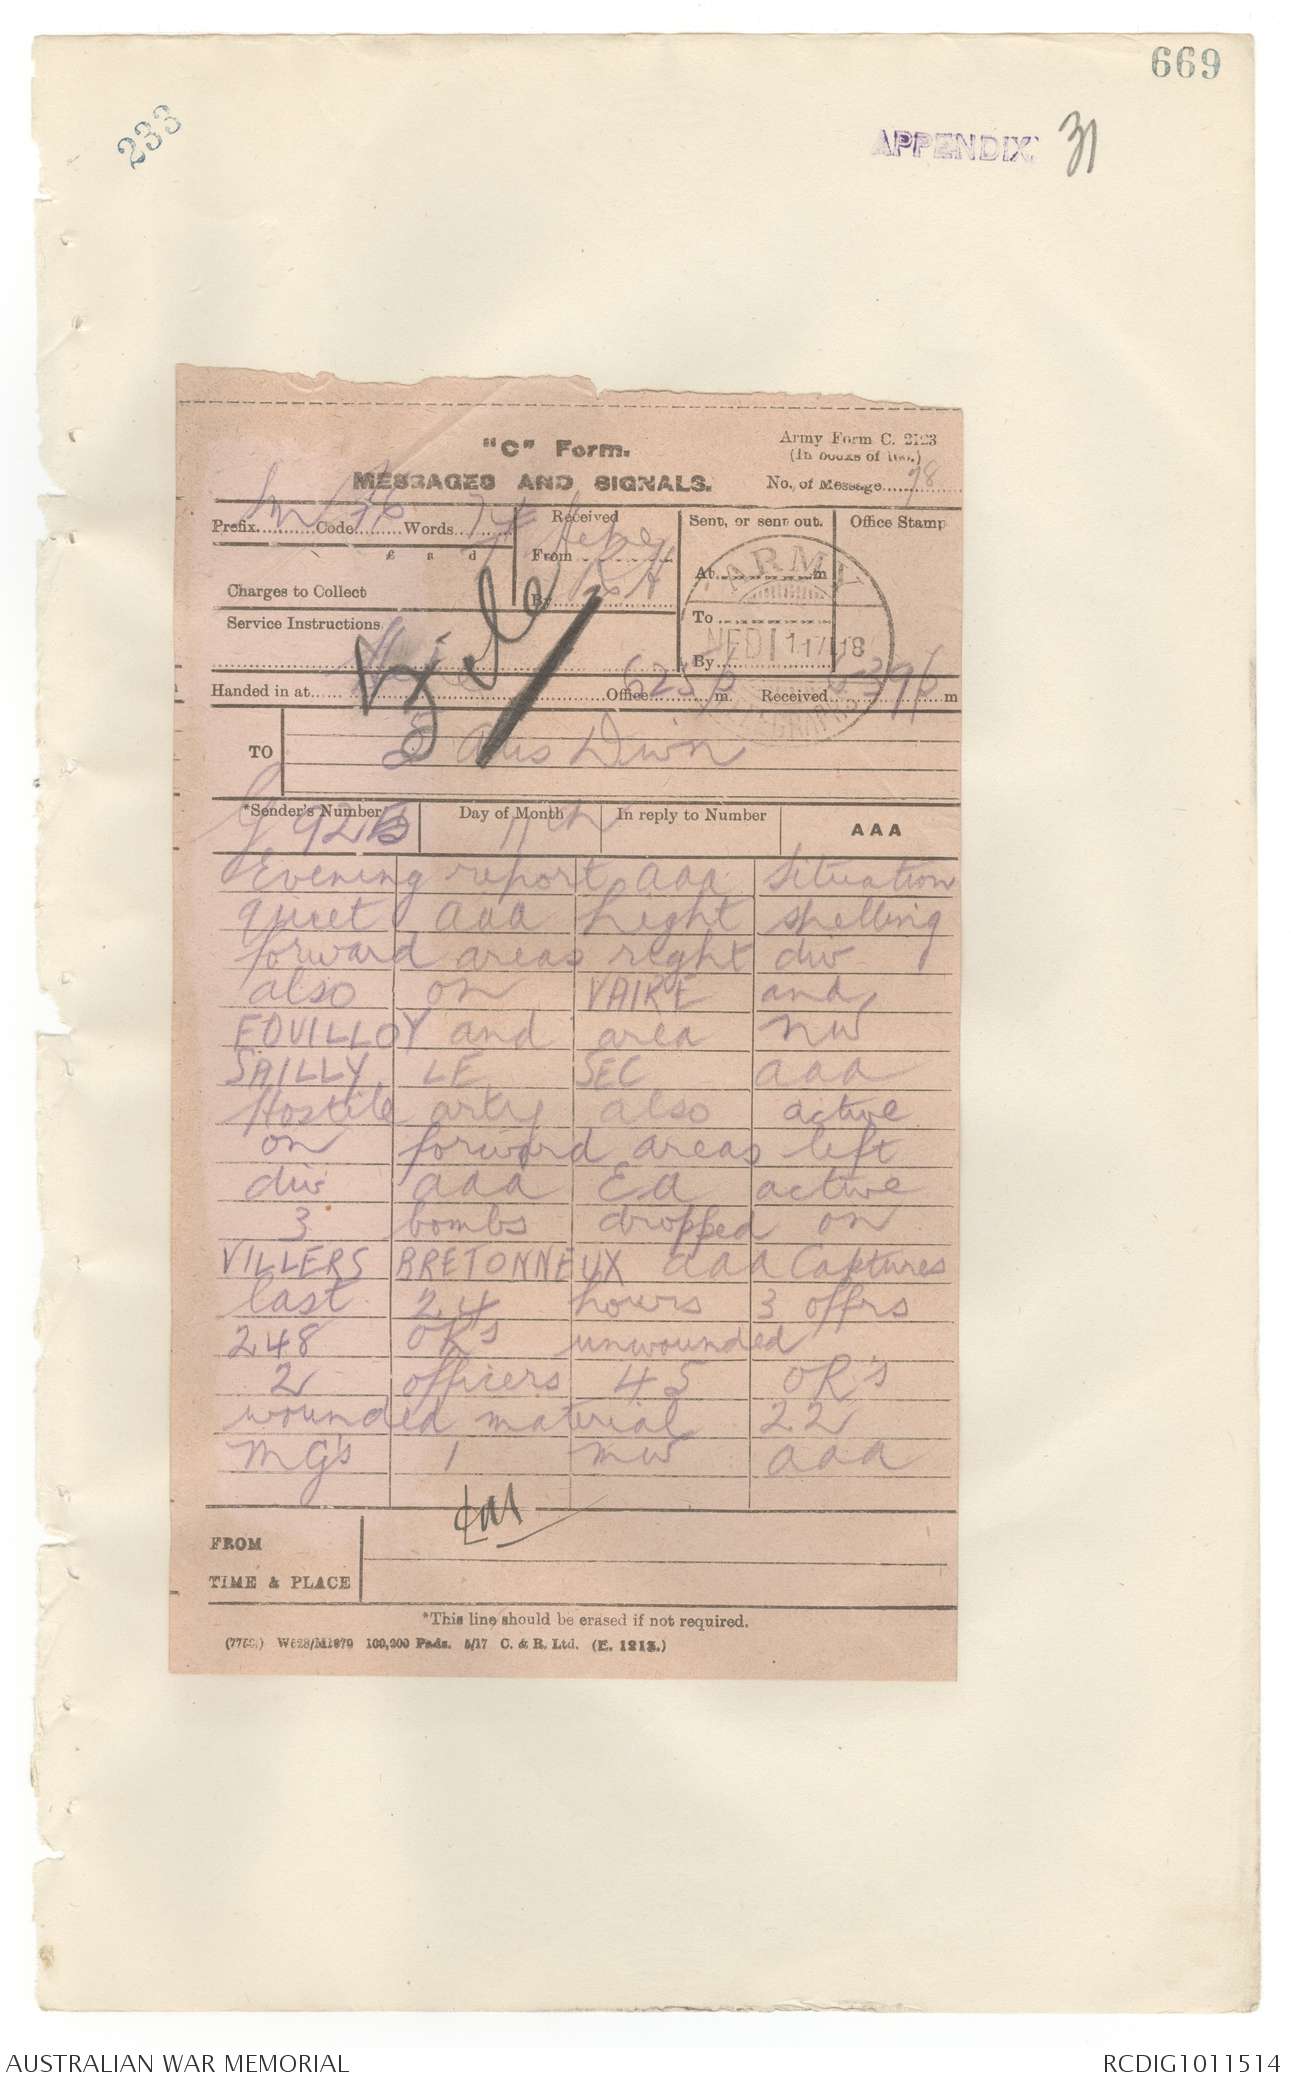 669
233
APPENDIX 31
"C" Form.
Army Form C. 2123
(In books of 100.)
MESSAGES AND SIGNALS.
No. of Message 78
Prefix Sm Code Words 74
Received
From
By
Sent, or sent out.
At m
To
By
Office Stamp
ARMY
£ s d
Charges to Collect
Service Instructions
File
Handed in at Office 625 p m. Received 6-39 p m
TO 5 Aus Divn
*Sender's Number
G 925
Day of Month
11th
In reply to Number
AAA
Evening report aaa Situation
quiet aaa Light shelling
forward areas right div
also on VAIRE and
FOUILLOY and area NW
SAILLY LE SEC aaa
Hostile arty also active
on forward areas left
div aaa EA active
3 bombs dropped on
VILLERS BRETONNEUX aaa Captures
last 24 hours 3 offrs
248 OR's unwounded
2 officers 45 OR's
wounded material 22
MG's 1 mw aaa
FROM
TIME & PLACE
*This line should be erased if not required.
C. & R. Ltd. (E. 1213.)
AUSTRALIAN WAR MEMORIAL
RCDIG1011514